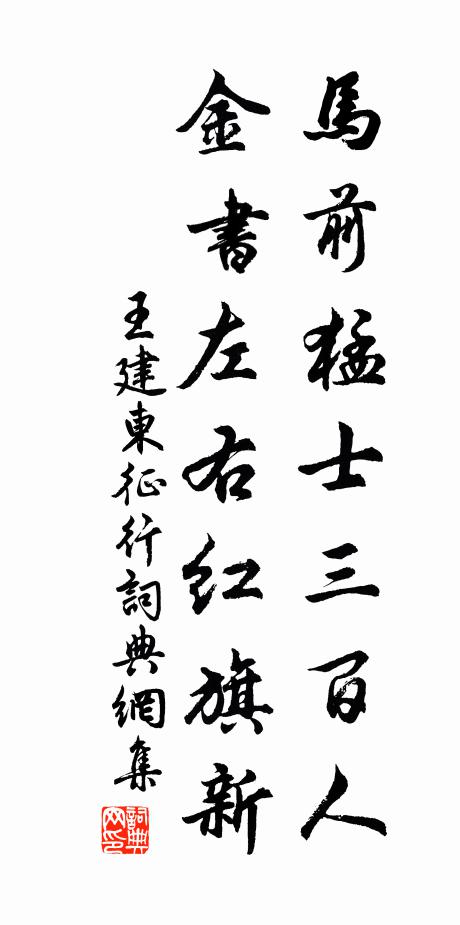 馬前猛士三百人
金書左右紅旗新
王建東征行詞典網集
詞典網印